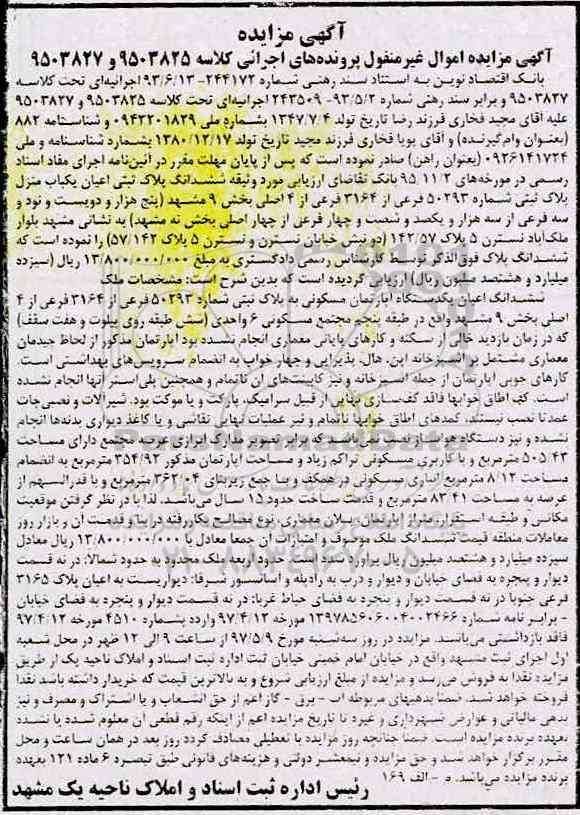 آگهی مزایده
آگهی مزایده اموال غیرمنقول پرونده‌های اجرائی کلاسه ۹۵۰۳۸۲۵ و ۹۵۰۳۸۲۷
بانک اقتصاد نوین به استناد سند رهنی شماره ۲۴۴۱۷۲-۹۳/۶/۱۳ اجرائیه‌ای تحت کلاسه
۹۵۰۳۸۲۷ و برابر سند رهنی شماره ۹۳/۵/۲-۲۴۳۵۰۹ اجرائیه‌ای تحت کلاسه ۹۵۰۳۸۲۵ و ۹۵۰۳۸۲۷
علیه آقای مجید فخاری فرزند رضا تاریخ تولد ۱۳۴۷/۷/۴ بشماره ملی ۰۹۴۳۲۰۱۸۳۹ و شناسنامه ۸۸۲
(بعنوان وام‌گیرنده) و آقای پویا فخاری فرزند مجید تاریخ تولد ۱۳۸۰/۱۲/۱۷ بشماره شناسنامه و ملی
۰۹۲۶۱۴۱۷۲۴ (بعنوان راهن) صادر نموده است که پس از پایان مهلت مقرر در آئین‌نامه اجرای مفاد اسناد
رسمی در مورخه‌های ۹۵/۱۱/۲ بانک تقاضای ارزیابی مورد وثیقه ششدانگ پلاک ثبتی اعیان یکباب منزل
پلاک ثبتی شماره ۵۰۲۹۳ فرعی از ۳۱۶۴ فرعی از ۴ اصلی بخش ۹ مشهد (پنج هزار و دویست و نود و
سه فرعی از سه هزار و یکصد و شصت و چهار فرعی از چهار اصلی بخش نه مشهد) به نشانی مشهد بلوار
ملک‌آباد نسترن ۵ پلاک ۱۴۲/۵۷ (دو نبش خیابان نسترن و نسترن ۵ پلاک ۵۷/۱۴۲) را نموده است که
ششدانگ پلاک فوق‌الذکر توسط کارشناس رسمی دادگستری به مبلغ ۱۳/۸۰۰/۰۰۰/۰۰۰ ریال (سیزده
میلیارد و هشتصد میلیون ریال) ارزیابی گردیده است که بدین شرح است: مشخصات ملک
ششدانگ اعیان یکدستگاه آپارتمان مسکونی به پلاک ثبتی شماره ۵۰۲۹۳ فرعی از ۳۱۶۴ فرعی از ۴
اصلی بخش ۹ مشهد واقع در طبقه پنجم مجتمع مسکونی ۶ واحدی (شش طبقه روی پیلوت و هفت سقف)
که در زمان بازدید خالی از سکنه و کارهای پایانی معماری انجام نشده بود آپارتمان مذکور از لحاظ چیدمان
معماری مشتمل بر آشپزخانه اپن، هال، پذیرایی و چهار خواب به انضمام سرویس‌های بهداشتی است.
کارهای چوبی آپارتمان از جمله آشپزخانه و نیز کابینت‌های آن ناتمام و همچنین پلی‌استر آنها انجام نشده
است. کف اطاق خوابها فاقد کف‌سازی نهایی از قبیل سرامیک، پارکت و یا موکت بود. شیرآلات و نصبی‌جات
عمدتا نصب نیستند، کمدهای اطاق خوابها ناتمام و نیز عملیات نهایی نقاشی و یا کاغذ دیواری بدنه‌ها انجام
نشده و نیز دستگاه هواساز نصب نمی‌باشد که برابر تصویر مدارک ابرازی عرصه مجتمع دارای مساحت
۵۰۵/۴۳ مترمربع و با کاربری مسکونی تراکم زیاد و مساحت آپارتمان مذکور ۳۵۴/۹۲ مترمربع به انضمام
مساحت ۸/۱۲ مترمربع انباری مسکونی در همکف و با جمع زیربنای ۳۶۲/۰۴ مترمربع و با قدرالسهم از
عرصه به مساحت ۸۳/۴۱ مترمربع و قدمت ساخت حدود ۱۵ سال می‌باشد. لذا با در نظر گرفتن موقعیت
مکانی و طبقه استقرار، متراژ آپارتمان، پلان معماری، نوع مصالح بکاررفته در بنا و قدمت آن و بازار روز
معاملات منطقه قیمت ششدانگ ملک موصوف و امتیازات آن جمعا معادل با ۱۳/۸۰۰/۰۰۰/۰۰۰ ریال معادل
سیزده میلیارد و هشتصد میلیون ریال برآورد شده است. حدود اربعه ملک محدود به حدود شمالا: در نه قسمت
دیوار و پنجره به فضای خیابان و دیوار و درب به راه‌پله و آسانسور شرقا: دیواریست به اعیان پلاک ۳۱۶۵
فرعی جنوبا در نه قسمت دیوار و پنجره به فضای حیاط غربا: در نه قسمت دیوار و پنجره به فضای خیابان
- برابر نامه شماره ۱۳۹۷۸۵۶۰۶۰۰۴۰۰۲۴۶۶ مورخه ۹۷/۴/۱۲ وارده بشماره ۴۵۱۰ مورخه ۹۷/۴/۱۲
فاقد بازداشتی می‌باشد. مزایده در روز سه‌شنبه مورخ ۹۷/۵/۹ از ساعت ۹ الی ۱۲ ظهر در محل شعبه
اول اجرای ثبت مشهد واقع در خیابان امام خمینی خیابان ثبت اداره ثبت اسناد و املاک ناحیه یک از طریق
مزایده نقدا به فروش می‌رسد و مزایده از مبلغ ارزیابی شروع و به بالاترین قیمت که خریدار داشته باشد نقدا
فروخته خواهد شد. ضمنا بدهیهای مربوطه آب - برق - گاز اعم از حق انشعاب و یا اشتراک و مصرف و نیز
بدهی مالیاتی و عوارض شهرداری و غیره تا تاریخ مزایده اعم از اینکه رقم قطعی آن معلوم شده یا نشده
بعهده برنده مزایده است. ضمنا چنانچه روز مزایده با تعطیلی مصادف گردد روز بعد در همان ساعت و محل
مقرر برگزار خواهد شد و حق مزایده و نیم‌عشر دولتی و هزینه‌های قانونی طبق تبصره ۶ ماده ۱۲۱ بعهده
برنده مزایده می‌باشد. م - الف ۱۶۹
رئیس اداره ثبت اسناد و املاک ناحیه یک مشهد